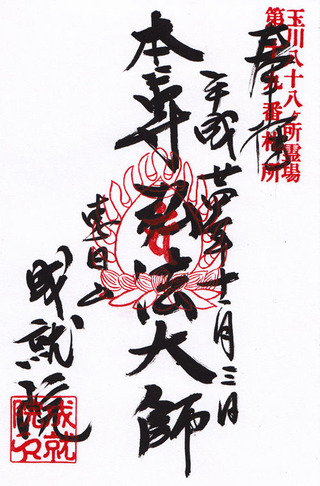 玉川八十八ヶ所霊場
奉拝
平成廿四年十一月三日
本尊弘法大師
東日山
成就院
成就
院印